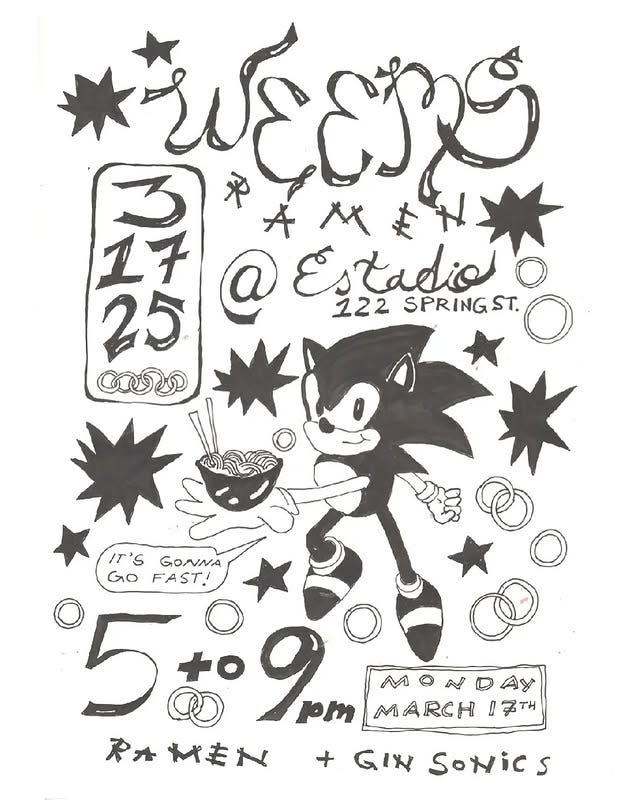 WEEMS
RAMEN
3
17
25
@ Estadio
122 SPRING ST.
IT'S GONNA
GO FAST!
5 to 9 pm
MONDAY
MARCH 17TH
RAMEN + GIN SONICS